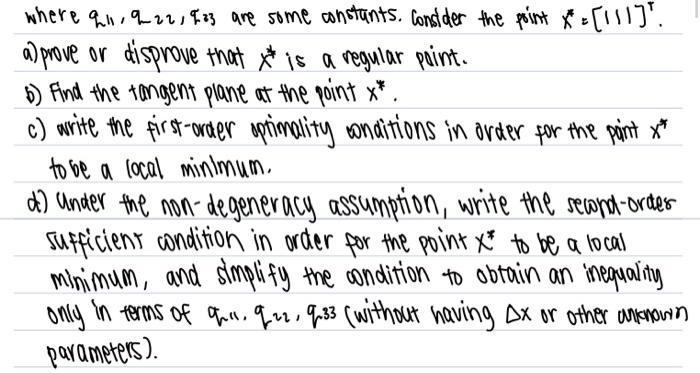 where q₁₁, q₂₂, q₃₃ are some constants. Consider the point x* = [1 1 1]ᵀ.
a) prove or disprove that x* is a regular point.
b) Find the tangent plane at the point x*.
c) write the first-order optimality conditions in order for the point x*
to be a local minimum.
d) Under the non-degeneracy assumption, write the second-order
sufficient condition in order for the point x* to be a local
minimum, and simplify the condition to obtain an inequality
only in terms of q₁₁, q₂₂, q₃₃ (without having Δx or other unknown
parameters).